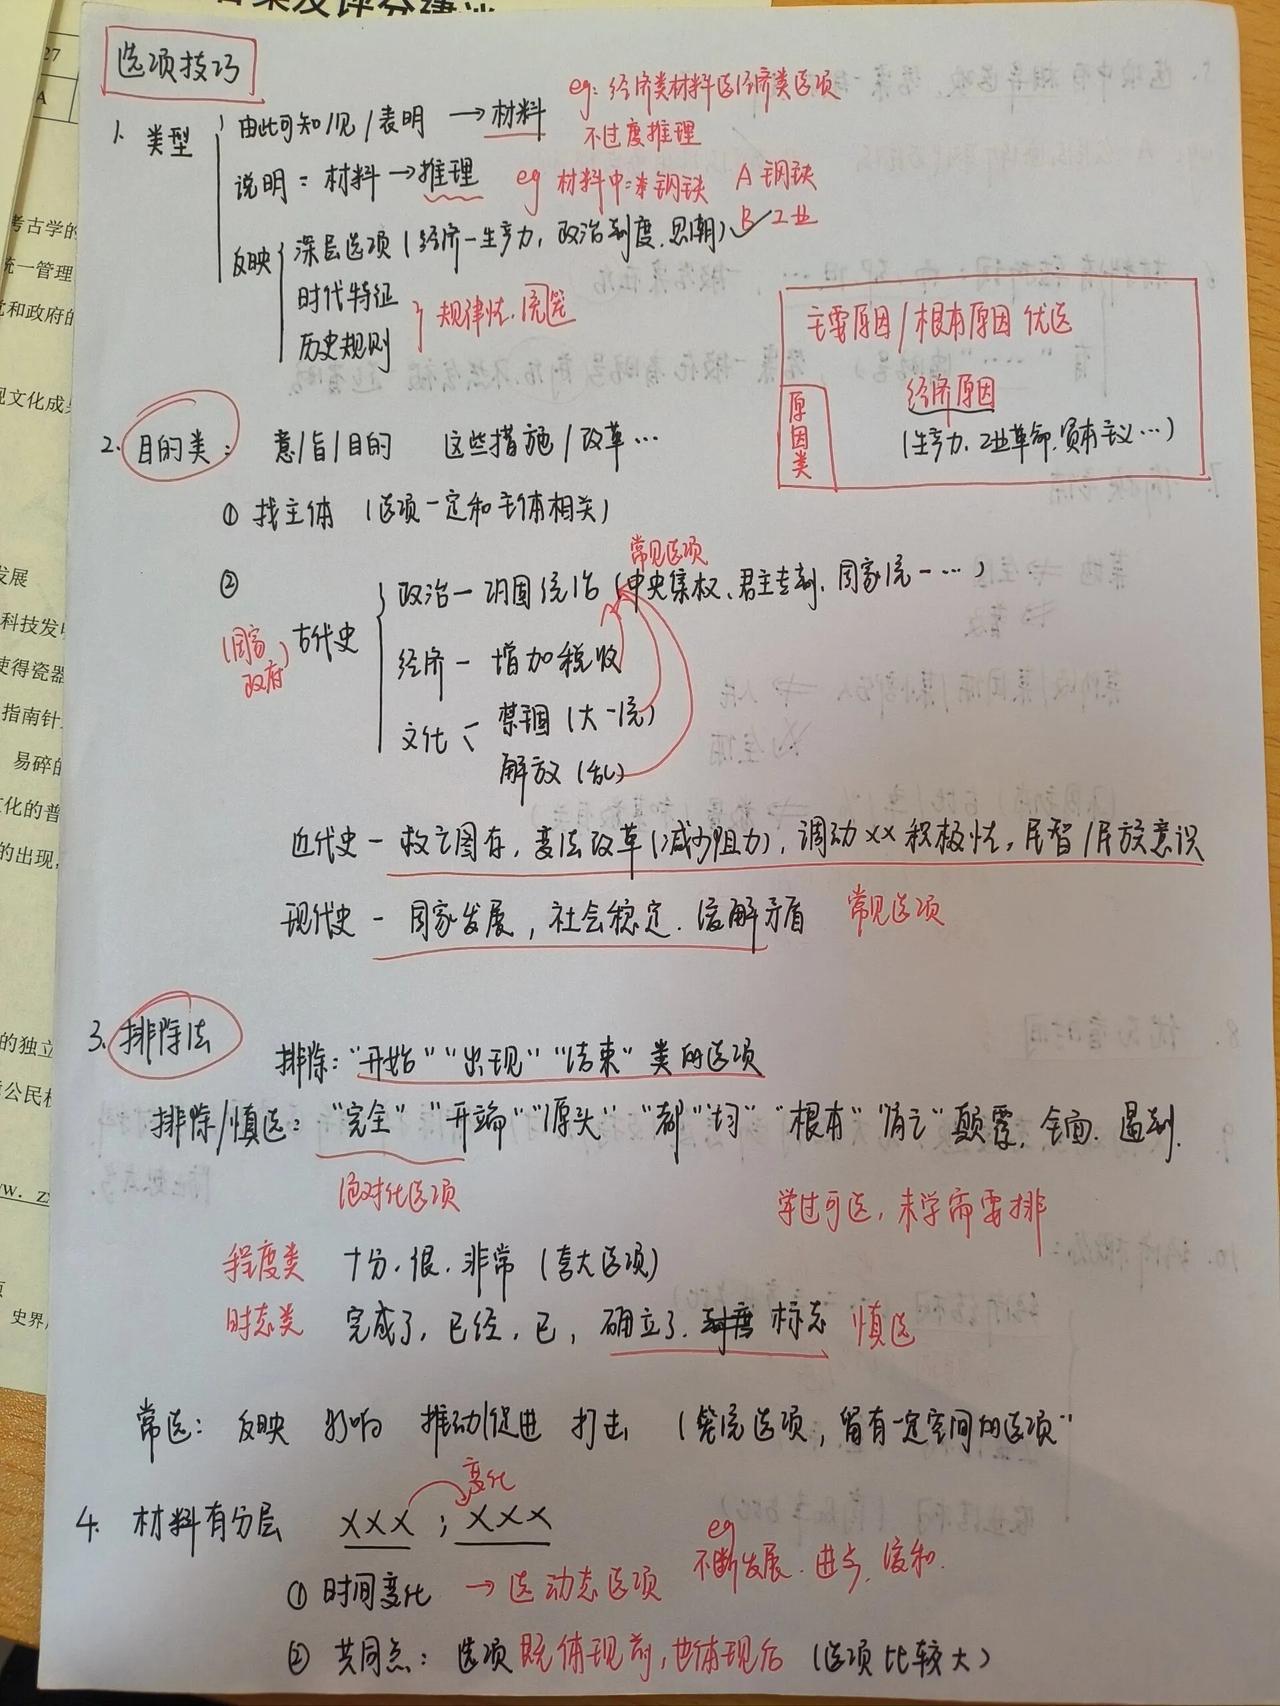 选项技巧
1. 类型
由此可知/见/表明 → 材料
eg: 经济类材料选经济类选项
不过度推理
说明 = 材料 → 推理
eg 材料中:钢铁 A 钢铁
B✓工业
反映
深层选项(经济一生产力,政治制度,思潮)
时代特征
历史规则
规律性
主要原因/根本原因 优选
经济原因
原因类
(生产力,工业革命,资本主义…)
2. 目的类:
意/旨/目的 这些措施/改革…
① 找主体 (选项一定和主体相关)
②
常见选项
(国家政府)
古代史
政治 — 巩固统治 (中央集权、君主专制、国家统一…)
经济 — 增加税收
文化
禁锢(大一统)
解放(乱)
近代史 — 救亡图存,变法改革(减少阻力),调动××积极性,民智/民族意识
现代史 — 国家发展,社会稳定,缓解矛盾 常见选项
3. 排除法
排除:"开始" "出现" "结束" 类的选项
排除/慎选:"完全" "开端" "源头" "都" "均" "根本" "消亡" 颠覆,全面,遏制.
绝对化选项
学过可选,未学需要排
程度类 十分,很,非常 (夸大选项)
时态类 完成了,已经,已,确立了,标志 慎选
常选: 反映 影响 推动/促进 打击 (笼统选项,留有一定空间的选项"
变化
4. 材料有分层 ××× ; ×××
① 时间变化 → 选动态选项
eg
不断发展、进步,缓和.
② 共同点: 选项既体现前,也体现后 (选项比较大)
考古学的
统一管理
党和政府的
观文化成
发展
科技发
使得瓷器
指南针
易碎的
文化的普
的出现,
的独立
公民
史界
27
A